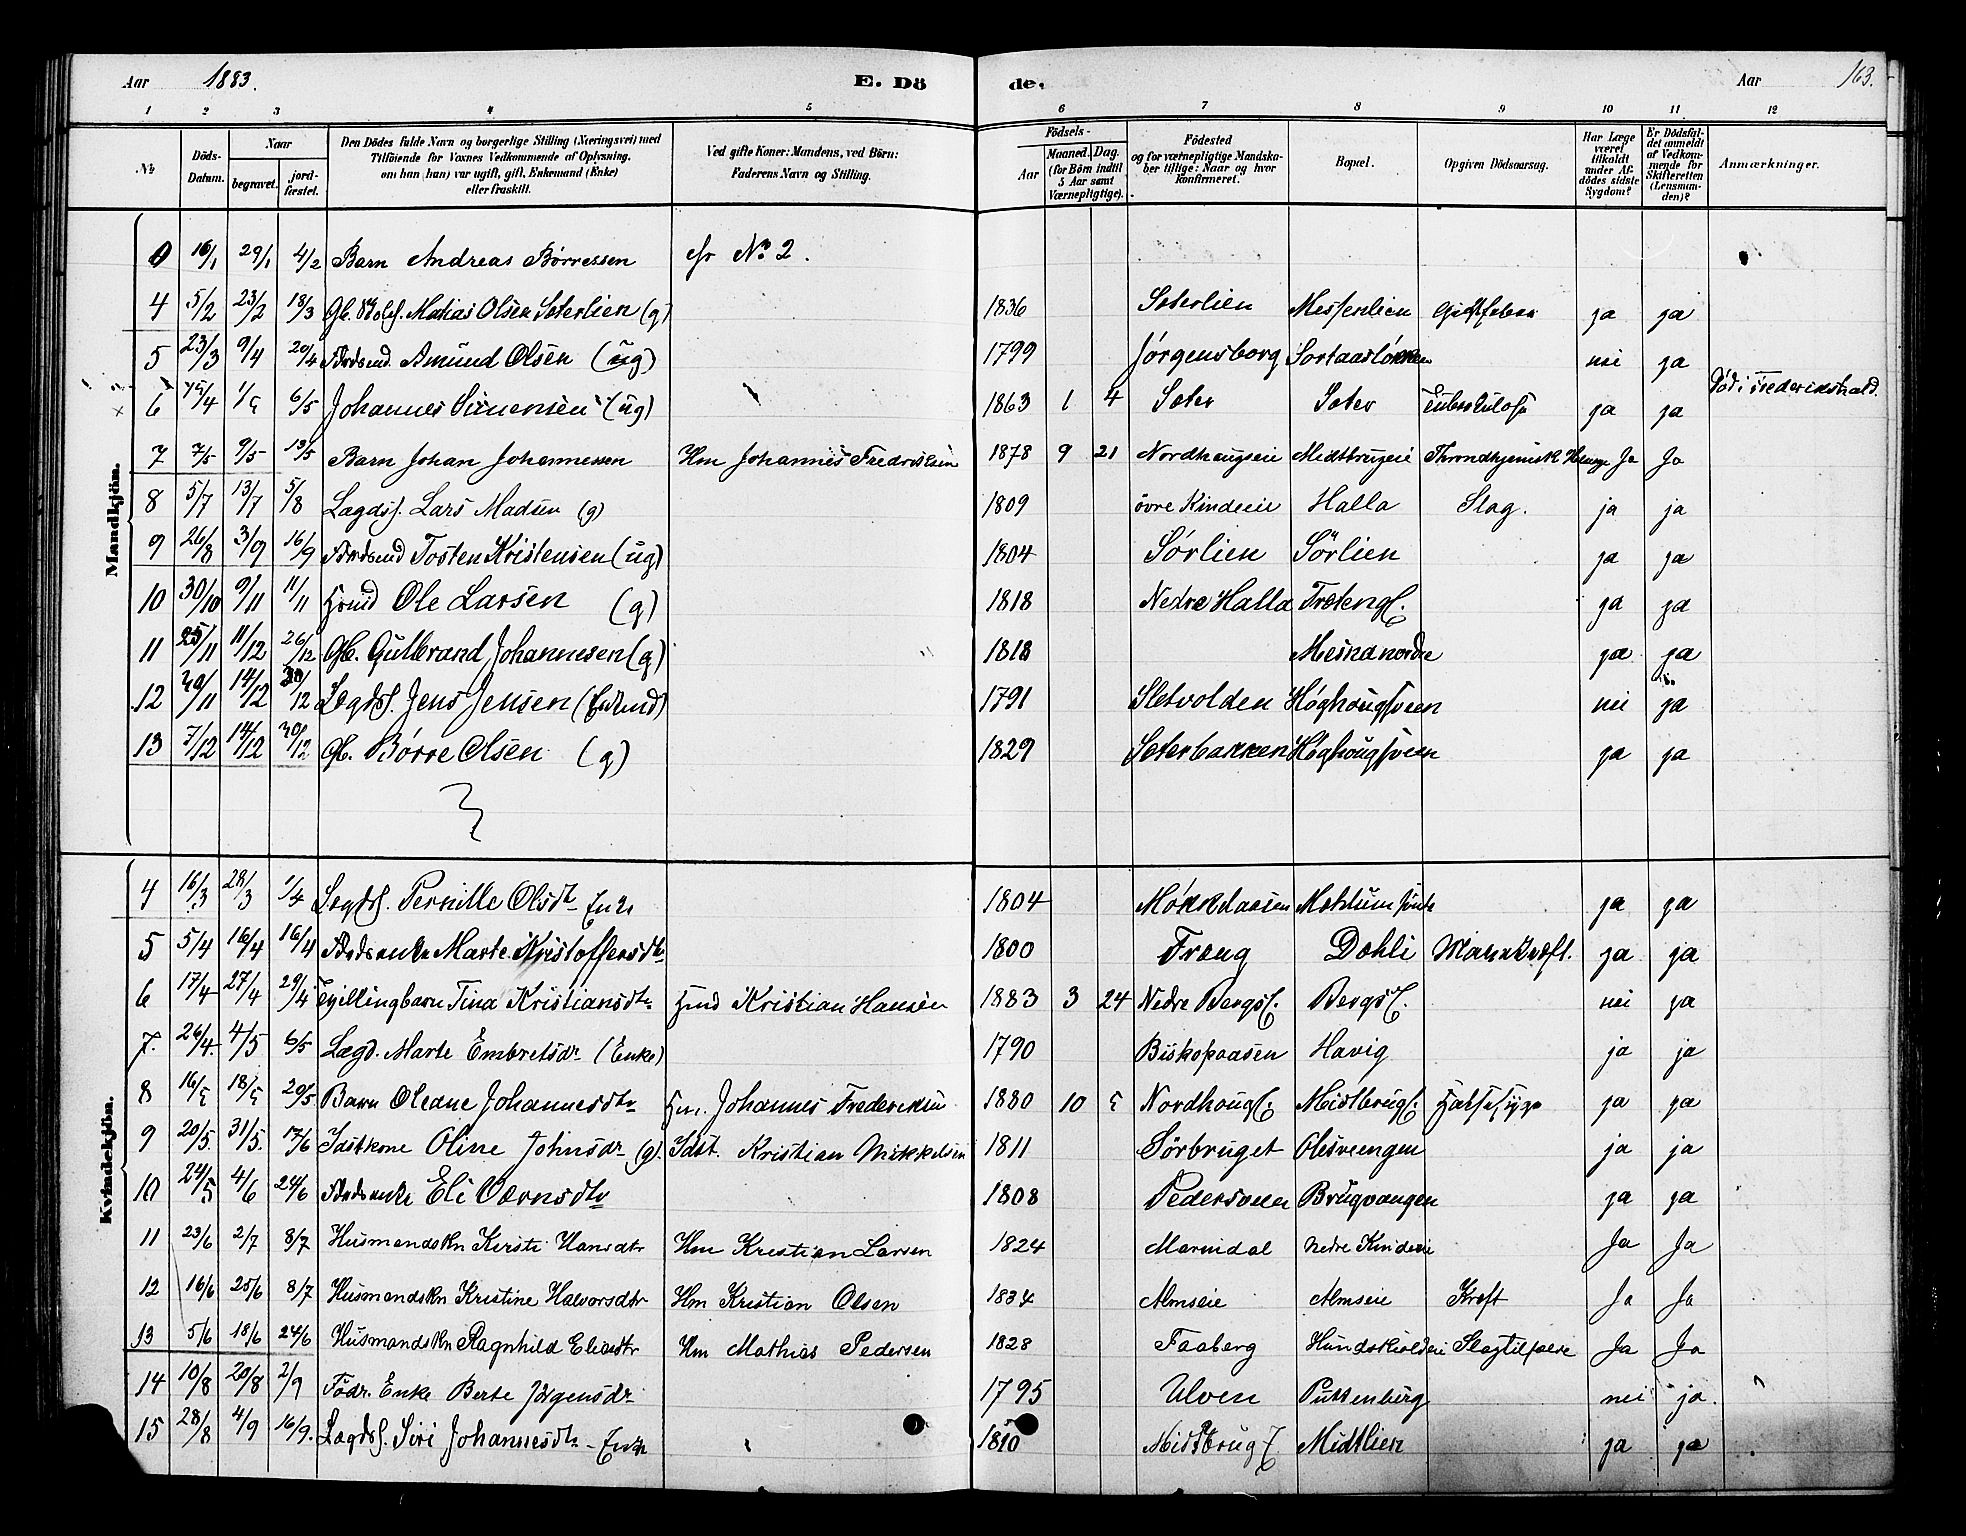 Aar 1883. E. Dö de. Aar 163.
1 2 3 4 5 6 7 8 9 10 11 12
No Döds-Datum. Naar begravet. jord-fæstet. Den Dödes fulde Navn og borgerlige Stilling (Næringsvei) med Tilföiende for Voxnes Vedkommende af Oplysning, om han (hun) var ugift, gift, Enkemand (Enke) eller fraskilt. Ved gifte Koner: Mandens, ved Börn: Faderens Navn og Stilling. Födsels- Aar Maaned. Dag. (for Börn indtil 5 Aar samt Værnepligtige). Födested og for værnepligtige Mandska-ber tillige: Naar og hvor konfirmeret. Bopæl. Opgiven Dödsaarsag. Har Læge været tilkaldt under Af-dödes sidste Sygdom? Er Dödsfal-det anmeldt af Vedkom-mende for Skifteretten (Lensman-den)? Anmærkninger.
Mandkjön.
0 16/1 29/1 4/2 Barn Andreas Børressen cfr No 2.
4 5/2 23/2 18/3 Gb. Matias Olsen Seterlien (g) 1836 Seterlien Messenlien Gigtfeber ja ja
5 23/3 9/4 20/4 Amund Olsen (ug) 1799 Jørgensborg Sortaasløkken nei ja
6 /4 6/5 Johannes Simensen (ug) 1863 1 4 Seter Seter Tuberkulose ja ja Död i Frederikshald.
7 7/5 9/5 13/5 Barn Johan Johannessen Hm Johannes Fredriksen 1878 9 21 Nordhaugseie Midtbrugeie Ja Ja
8 5/7 13/7 5/8 Lægdsl. Lars Madsen (g) 1809 övre Kindeeie Halla Slag. ja ja
9 26/8 3/9 16/9 Tosten Kristensen (ug) 1804 Sørlien Sørlien ja ja
10 30/10 9/11 11/11 Hmd Ole Larsen (g) 1818 Nedre Halla ja ja
11 25/11 11/12 26/12 Gb. Gulbrand Johannesen (g) 1818 Mesna nordre ja ja
12 /11 14/12 /12 Lægdsl. Jens Jensen (Enkmd) 1791 Sletvolden Høghougsveen nei ja
13 7/12 14/12 30/12 Gb. Børre Olsen (g) 1829 Seterbakken Høghougsveen ja ja
Kvindekjön.
4 16/3 28/3 1/4 Legdsl. Pernille Olsdtr Enke 1804 Møkkelaasen ja ja
5 5/4 16/4 16/4 Marte Kristoffersdtr 1800 Træng Dæhli ja ja
6 17/4 27/4 29/4 Tvillingbarn Tina Kristiansdtr Hmd Kristian Hansen 1883 3 24 Nedre Bergse. Bergse. nei ja
7. 26/4. 4/5 6/5 Lægd. Marte Embretsdr (Enke) 1790 Biskopaasen Havig ja ja
8 16/5 18/5 20/5 Barn Oleane Johannesdtr Hm. Johannes Frederiksen 1880 10 5 Nordhouge. Midtbruge. Halsesyge ja ja
9 20/5. 31/5. 17/6 Idstkone Oline Johnsdr (g). Idst. Kristian Mikkelsen 1811 Sørbruget Olesveengen ja ja
10 24/5 4/6 24/6 Eli 1808 Pedersveen Brugvangen ja ja
11 23/6 2/7 8/7 Husmandskn Kersti Hansdtr Hm Kristian Larsen 1824 Marindal nedre Kindeeie Ja Ja
12 16/6 25/6 8/7 Husmandskn Kristine Halvorsdtr Hm Kristian Olsen 1834 Almseie Almseie Kreft Ja Ja
13 5/6 18/6 24/6 Husmandskn Ragnhild Eliasdtr Hm Mathias Pedersen 1828 Faaberg Hundskioldeie Slagtilfælde Ja Ja
14 10/8 20/8 2/9 Födr. Enke Berte Jørgensdr 1795 Ulven Puttenburg nei ja.
15 28/8 4/9 16/9. Lægdsl. Siri Johannesdtr - Enke 1810 Midtbruge Midtlien ja ja